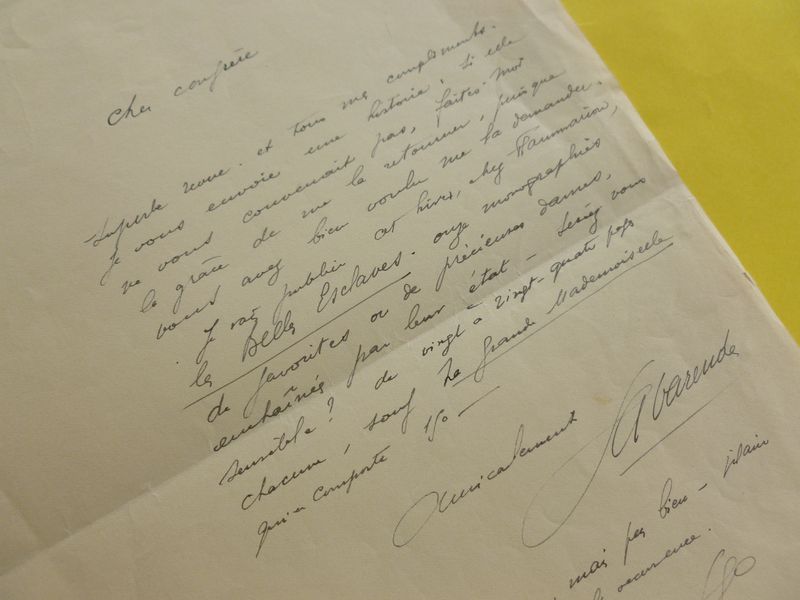 Cher confrère
Superbe revue. et tous mes compliments.
Je vous envoie une histoire, si elle
ne vous convenait pas, faites-moi
la grâce de me la retourner, puisque
vous avez bien voulu me la demander.
Je vais publier cet hiver, chez Flammarion,
les Belles Esclaves. onze monographies
de favorites ou de précieuses dames,
enchaînées par leur état - Seriez vous
sensible ? de vingt à vingt-quatre pages
chacune, sauf La Grande Mademoiselle
qui en comporte 150 —
Amicalement
La Varende
mais pas bien -
recurrence.